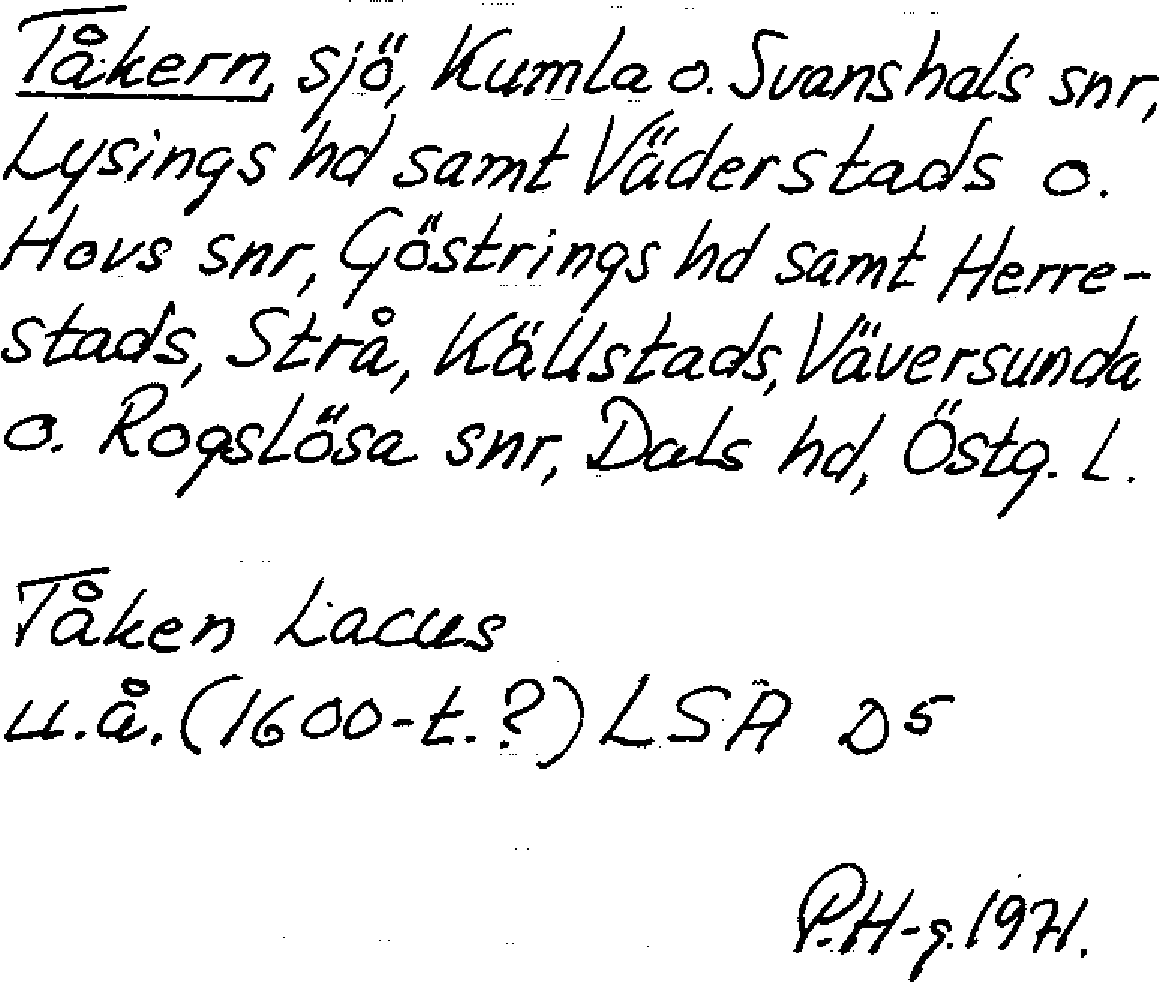 Tåkern, sjö, Kumla o. Svanshals snr,
Lysings hd samt Väderstads o.
Hovs snr, Göstrings hd samt Herre-
stads, Strå, Källstads, Väversunda
o. Rogslösa snr, Dals hd, Östg. L.
Tåken Lacus
u.å. (1600-t.?) LSA D5
P.H-g. 1971.